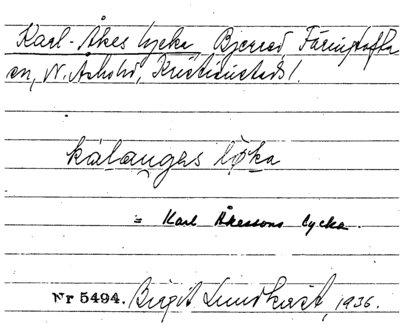 Karl-Åkes lycka, Bjerröd, Färingtofta
sn, N. Åsbohd, Kristianstads l.
kalaŋgas lø̨ka
= Karl Åkessons lycka.
Nr 5494. Birgit Lundkvist, 1936.